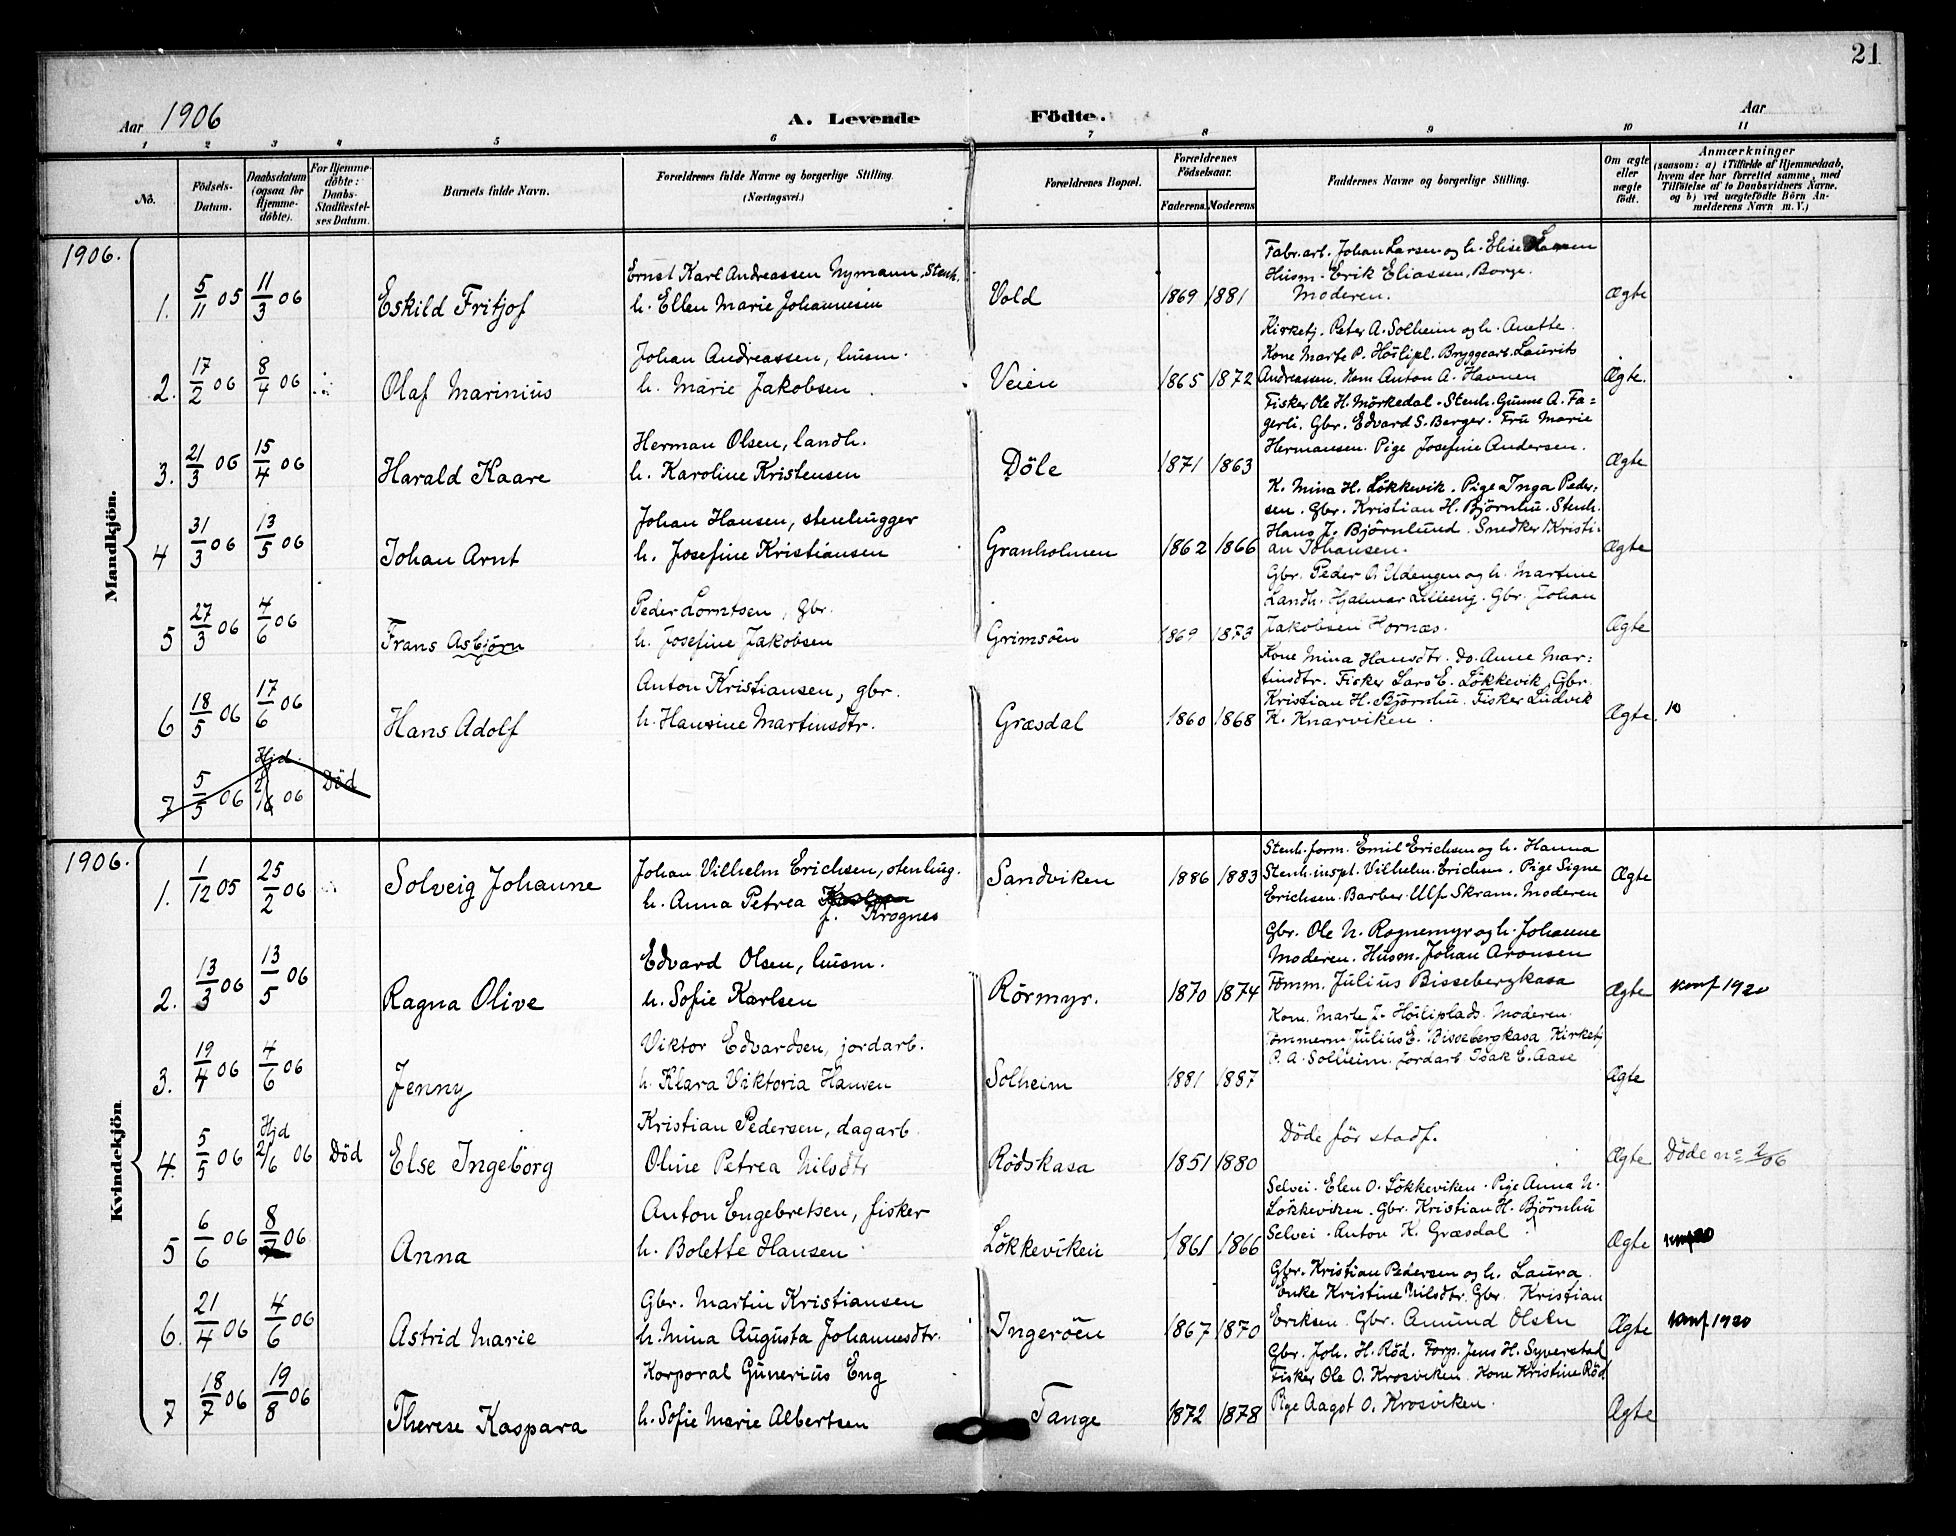 21
Aar 1906
A. Levende Födte.
Aar
1 2 3 4 5 6 7 8 9 10 11
No.
Födsels-Datum.
Daabsdatum (ogsaa for Hjemme-döbte).
For Hjemme-döbte: Daabs-Stadfæstel-ses Datum.
Barnets fulde Navn.
Forældrenes fulde Navne og borgerlige Stilling.
(Næringsvei.)
Forældrenes Bopæl.
Forældrenes Födselsaar.
Faderens. Moderens.
Faddernes Navne og borgerlige Stilling.
Om ægte eller uægte födt.
Anmærkninger
(saasom: a) i Tilfælde af Hjemmedaab, hvem der har forrettet samme, med Tilföielse af to Daabsvidners Navne, og b) ved uægtefödte Börn An-melderens Navn m. V.)
Mandkjön.
1906.
1. 5/11 05 11/3 06 Eskild Fritjof
Ernst Karl Andreassen Nymann, Stenh.
h. Ellen Marie Johannesen
Vold 1869 1881
Fabr.arb. Johan Larsen og h. Elise Larsen
Husm. Erik Eliassen, Borge.
Moderen.
Ægte
2. 17/2 06 8/4 06 Olaf Marinius
Johan Andreassen, husm.
h. Marie Jakobsen
Veien 1865 1872
Kirketj. Peter A. Solheim og h. Anette.
Kone Marte P. Höilipl. Bryggearb. Laurits
Andreassen. Kom Anton A. Havnen
Ægte.
3. 21/3 06 15/4 06 Harald Kaare
Herman Olsen, landh.
h. Karoline Kristensen
Döle 1871 1863
Fisker Ole H. Mörkedal. Stenh. Gunne A. Fa=
gerli. Gbr. Edvard S. Berger. Fru Marie
Hermansen. Pige Josefine Andersen.
Ægte
4 31/3 06 13/5 06 Johan Arnt
Johan Hansen, stenhugger
h. Josefine Kristiansen
Granholmen 1862 1866
K. Mina H. Lökkevik. Pige Inga Peder=
sen. Gbr. Kristian H. Björnhu. Stenh.
Hans J. Björnlund. Snedker Kristi-
an Johansen.
Ægte
5 27/3 06 4/6 06 Frans Asbjörn
Peder Lorntsen, Gbr.
h. Josefine Jakobsen
Grimsöen 1869 1873
Gbr. Peder A. Udengen og h. Martine
Landh. Hjalmar Lilleeng. Gbr. Johan
Jakobsen Hornæs.
Ægte
6 18/5 06 17/6 06 Hans Adolf
Anton Kristiansen, gbr.
h. Hansine Martinsdtr.
Græsdal 1860 1868
Kone Mina Hansdtr. Do. Anne Mar=
tinsdtr. Fisker Lars E. Lökkevik. Gbr.
Kristian H. Björnhu. Fisker Ludvik
K. Knarviken.
Ægte. 10
7 5/5 06 Hjd. 2/6 06 Död
Kvindekjön
1906.
1. 1/12 05 25/2 06 Solveig Johanne
Johan Vilhelm Erichsen, stenhug.
h. Anna Petrea
f. Krognes
Sandviken 1886 1883
Stenh.form. Emil Erichsen og h. Hanna
Stenh.inspt. Vilhelm Erichsen. Pige Signe
Erichsen. Barber Ulf Skram. Moderen
Ægte
2. 13/3 06 13/5 06 Ragna Olive
Edvard Olsen, husm.
h. Sofie Karlsen
Rörmyr. 1870 1874
Gbr. Ole N. Rognemyr og h. Johanne
Moderen. Husm. Johan Aronsen
Tömm. Julius Bissebergkasa
Ægte konf 1920
3. 19/4 06 4/6 06 Jenny
Viktor Edvardsen, jordarb.
h. Klara Viktoria Hansen
Solheim 1881 1887
Kone. Marte J. Höiliplads. Moderen.
Tömmerm. Julius E. Bissebergkasa Kirketj
P. A. Solheim. Jordarb Isak E. Aase
Ægte
4. 5/5 06 Hjd 2/6 06 Död Else Ingeborg
Kristian Pedersen, dagarb.
Oline Petrea Nilsdtr
Rödskasa 1851 1880
Döde för stadf.
Ægte Döde no 2/06
5 6/6 06 8/7 06 Anna
Anton Engebretsen, fisker
h. Bolette Hansen
Lökkeviken 1861 1866
Selvei. Elen O. Lökkeviken. Pige Anna N.
Lökkeviken. Gbr. Kristian H. Björnhu
Selvei. Anton K. Græsdal
Ægte
6. 21/4 06 4/6 06 Astrid Marie
Gbr. Martin Kristiansen
h. Mina Augusta Johannesdtr.
Ingeröen 1867 1870
Gbr. Kristian Pedersen og h. Laura
Enke Kristine Nilsdtr. Gbr. Kristian
Eriksen. Gbr. Amund Olsen
Ægte konf 1920
7 18/7 06 19/8 06 Therese Kaspara
Korporal Gunerius Eng
h. Sofie Marie Albertsen
Tange 1872 1878
Gbr. Joh. H. Röd. Forp. Jens H. Syverstad
Fisker Ole O. Krosviken. Kone Kristine Röd
Pige Aagot O. Krosviken.
Ægte